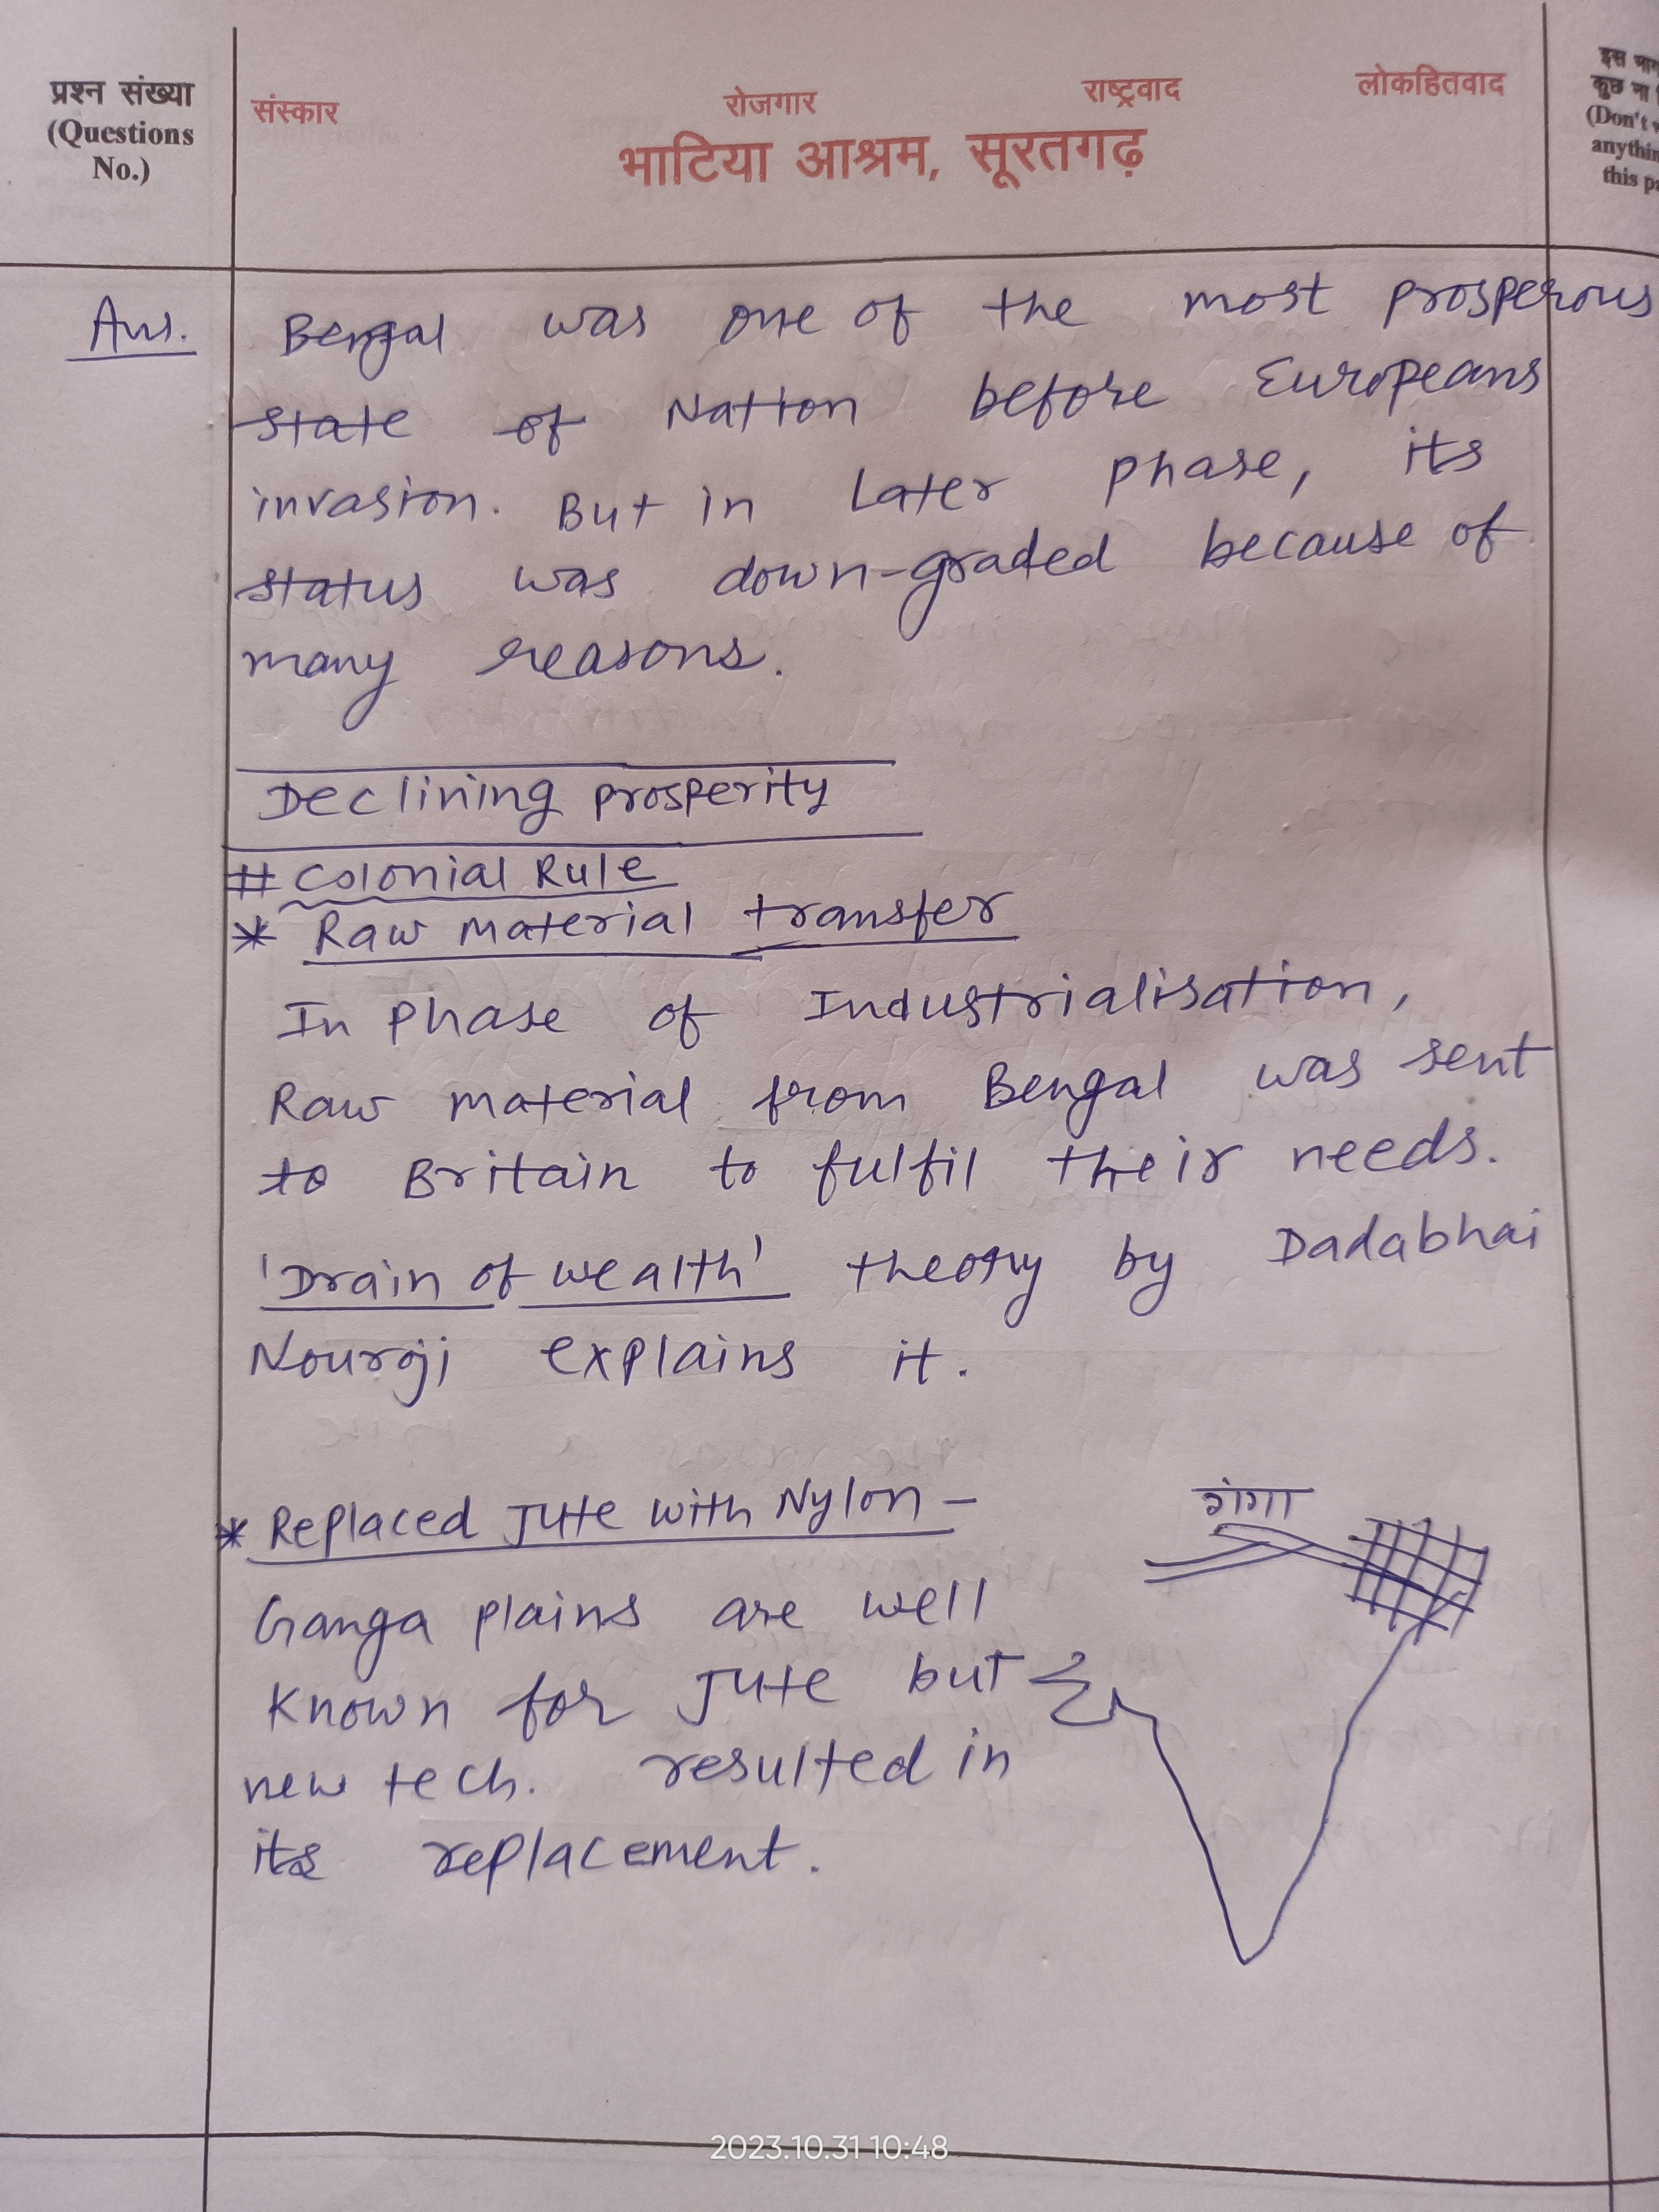 प्रश्न संख्या
(Questions
No.)
संस्कार रोजगार राष्ट्रवाद लोकहितवाद
भाटिया आश्रम, सूरतगढ़
इस भाग
कुछ ना
(Don't
this
Ans. Bengal was one of the most prosperous
state of Nation before Europeans
invasion. But in Later phase, its
status was down-graded because of
many reasons.
Declining prosperity
# Colonial Rule
* Raw material transfer
In phase of Industrialisation,
Raw material from Bengal was sent
to Britain to fulfil their needs.
'Drain of wealth' theory by Dadabhai
Nouroji explains it.
* Replaced Jute with Nylon -
गंगा
Ganga plains are well
known for Jute but
new tech. resulted in
its replacement.
2023.10.31 10:48